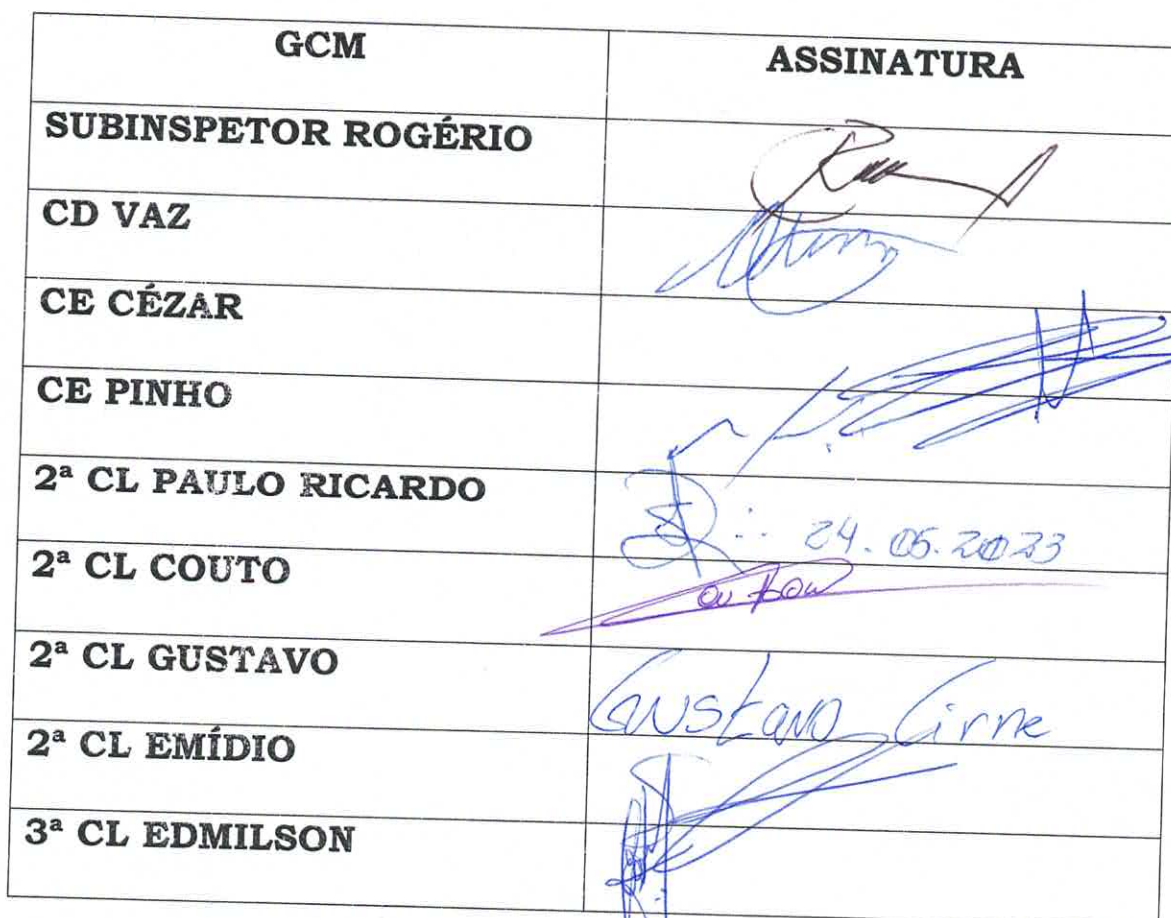 GCM ASSINATURA
SUBINSPETOR ROGÉRIO
CD VAZ
CE CÉZAR
CE PINHO
2ª CL PAULO RICARDO 24.05.2023
2ª CL COUTO
2ª CL GUSTAVO Gustavo Cirne
2ª CL EMÍDIO
3ª CL EDMILSON